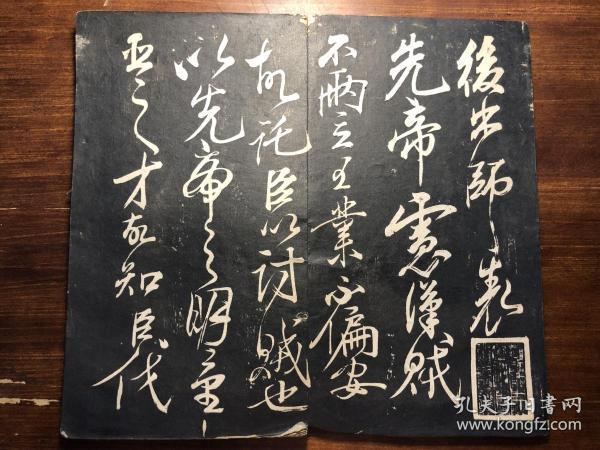 後出師表
先帝慮漢賊
不兩立王業不偏安
故託臣以討賊也
以先帝之明量
臣之才故知臣伐
孔夫子旧书网
www.kongfz.com